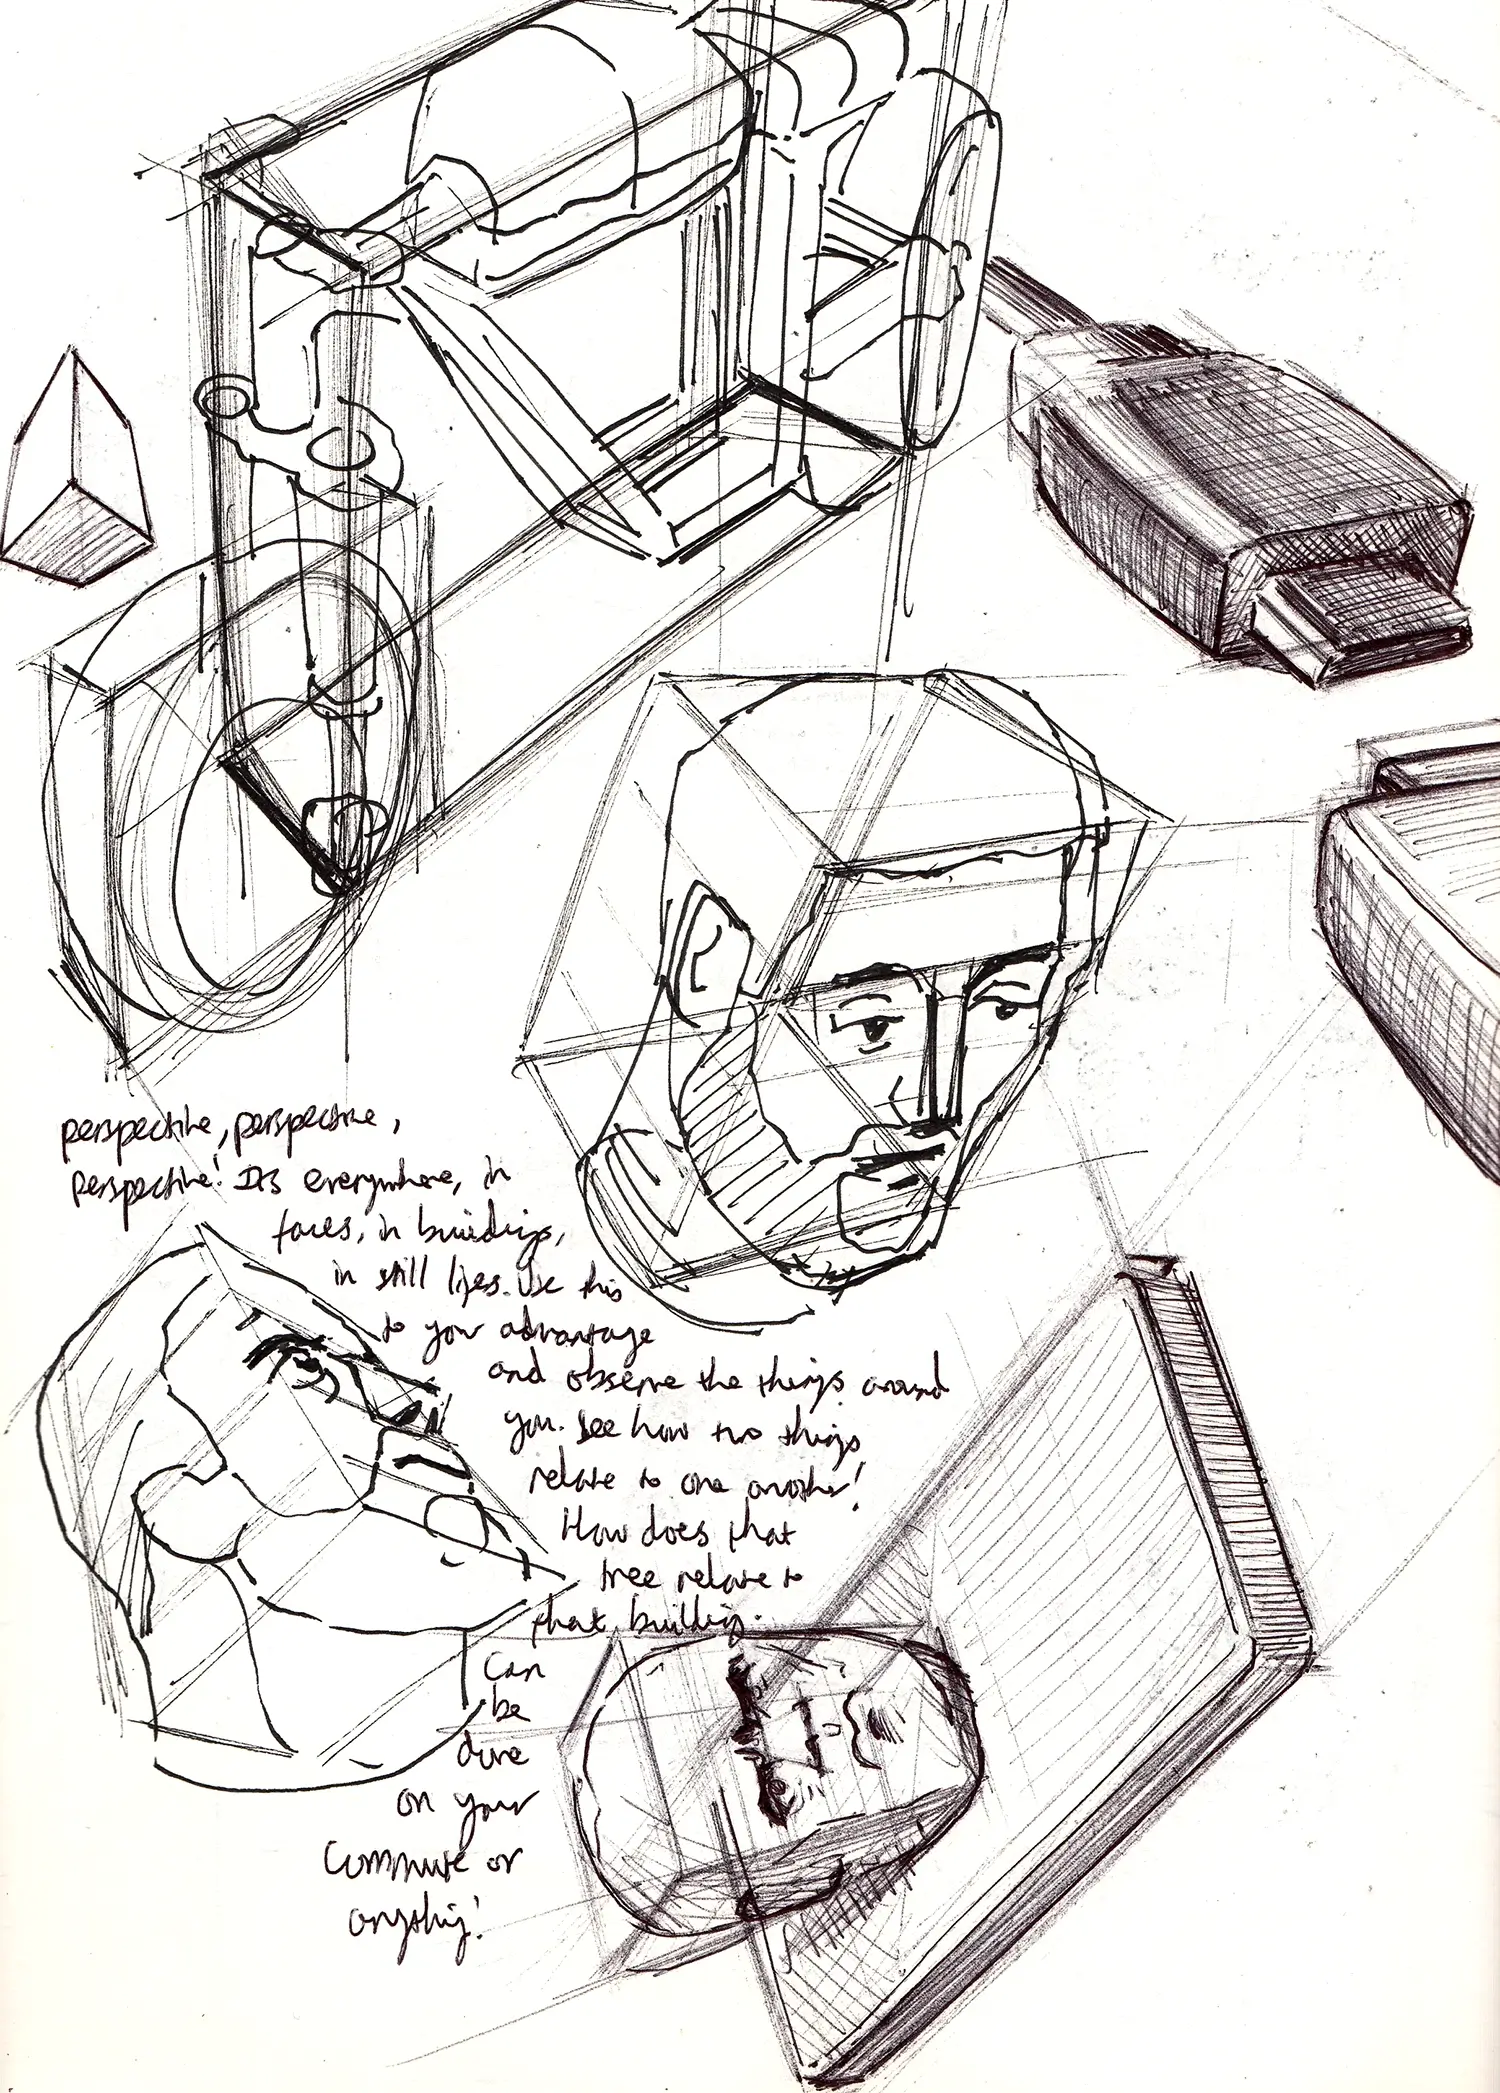 perspective, perspective,
perspective! Its everywhere, in
faces, in buildings,
in still lifes. Use this
to your advantage
and observe the things around
you. See how two things
relate to one another!
How does that
tree relate to
that building.
Can
be
done
on your
commute or
anything!